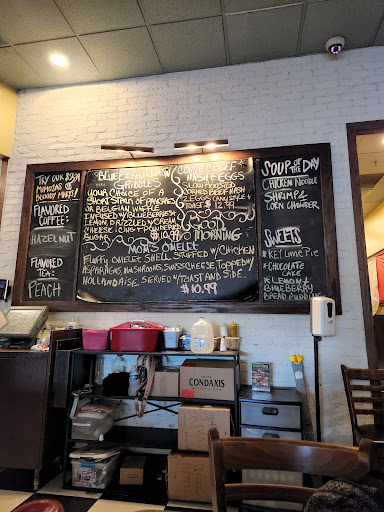 TRY OUR
MIMOSAS &
BLOODY MARYS!
FLAVORED
COFFEE:
HAZELNUT
FLAVORED
TEA:
PEACH
GRIDDLES
YOUR CHOICE OF A
SHORT STACK OF PANCAKES
OR BELGIAN WAFFLE
INFUSED W/ BLUEBERRIES &
LEMON DRIZZLED W/ CREAM
CHEESE ICING & POWDERED
SUGAR $10.99
CORNED BEEF
HASH & EGGS
SLOW ROASTED
CORNED BEEF HASH
2 EGGS
GOOD
MORNING
MOM'S OMELET
FLUFFY OMELET SHELL STUFFED W/ CHICKEN
ASPARAGUS, MUSHROOMS, SWISS CHEESE, TOPPED W/
HOLLANDAISE SERVED W/ TOAST AND SIDE.
$10.99
SOUP OF THE
DAY
CHICKEN NOODLE
SHRIMP &
CORN CHOWDER
SWEETS
* KEY LIME PIE
* CHOCOLATE
CAKE
* LEMON &
BLUEBERRY
BREAD PUDDING
CONDAXIS